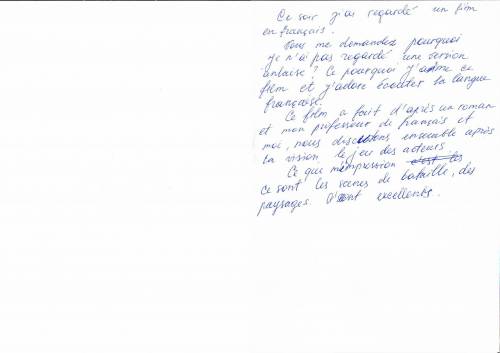 Ce soir j'ai regardé un film
en français.
Vous me demandez pourquoi
je n'ai pas regardé une version
anlaise? Ce pourquoi j'aime ce
film et j'adore écouter la langue
française.
Ce film a fait d'après un roman
et mon professeur de français et
moi, nous discutons ensemble après
la vision, le jeu des acteurs.
Ce que m'impression c'est les
ce sont les scenes de bataille, des
paysages. excellents.